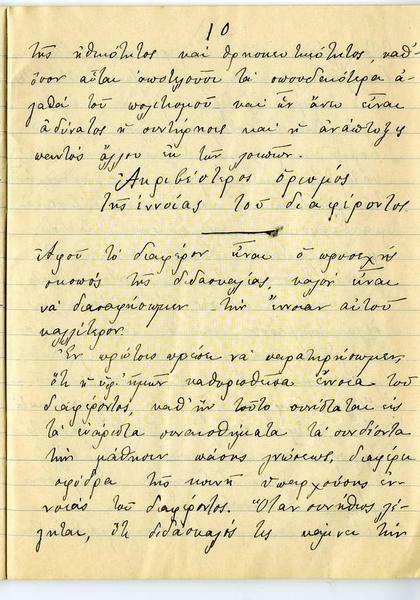 10
τῆς ἠθικότητος καὶ θρησκευτικότητος, καθ'
ὅσον αὗται ἀποτελοῦσι τὰ σπουδαιότερα ἀ-
γαθὰ τοῦ πολιτισμοῦ καὶ ὧν ἄνευ εἶναι
ἀδύνατος ἡ συντήρησις καὶ ἡ ἀνάπτυξις
παντὸς ἄλλου ἐκ τῶν λοιπῶν.
Ἀκριβέστερος ὁρισμός
τῆς ἐννοίας τοῦ διαφέροντος
Ἀφοῦ τὸ διαφέρον εἶναι ὁ προσεχὴς
σκοπὸς τῆς διδασκαλίας, καλὸν εἶναι
νὰ διασαφήσωμεν τὴν ἔννοιαν αὐτοῦ
καλλίτερον.
Ἐν πρώτοις πρέπει νὰ παρατηρήσωμεν,
ὅτι ἡ ὑφ' ἡμῶν καθορισθεῖσα ἔννοια τοῦ
διαφέροντος, καθ' ἣν τοῦτο συνίσταται εἰς
τὰ εὐάρεστα συναισθήματα τὰ συνδέοντα
τὴν μάθησιν πάσης γνώσεως, διαφέρει
σφόδρα τῆς κοινῆς ὑπαρχούσης ἐν-
νοίας τοῦ διαφέροντος. Ὅταν συνήθως λέ-
γηται, ὅτι διδάσκαλός τις κάμνει τὴν